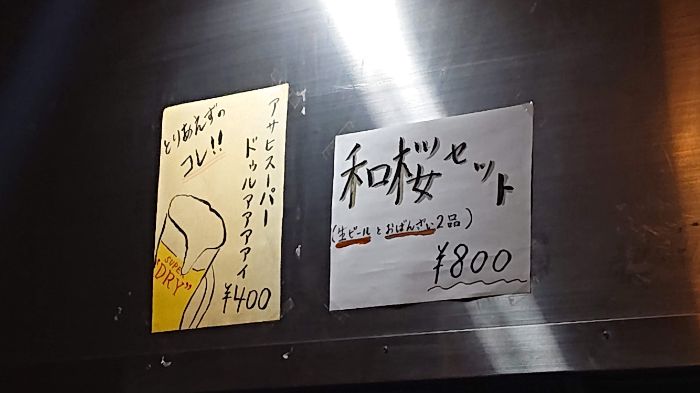 アサヒスーパー
ドゥルァァァァイ
とりあえずの
コレ!!
SUPER
"DRY"
¥400
和桜セット
(生ビールとおばんざい2品)
¥800